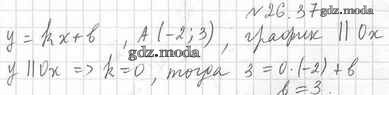 №26.37 gdz.moda
y = kx + b , A (-2; 3) , график || Ox
gdz.moda
y || Ox => k = 0 , тогда 3 = 0·(-2) + b
b = 3.